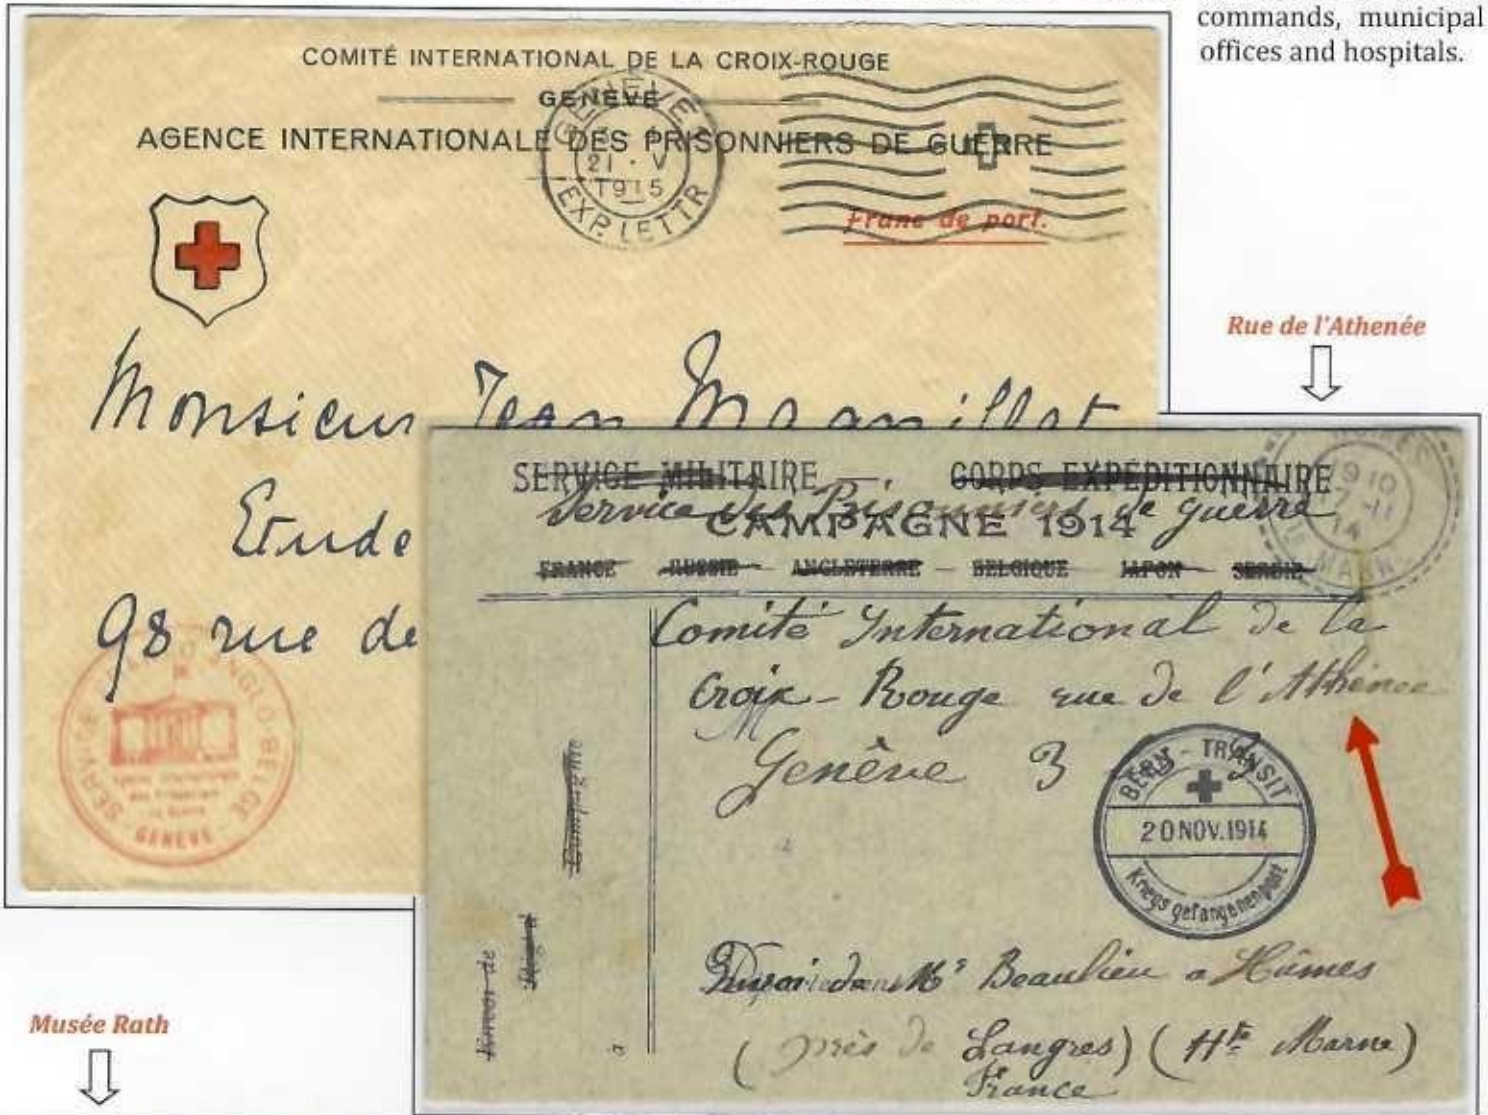 commands, municipal
offices and hospitals.
COMITÉ INTERNATIONAL DE LA CROIX-ROUGE
GENÈVE
AGENCE INTERNATIONALE DES PRISONNIERS DE GUERRE
GENÈVE 1
21 · V
1915
EXP. LETTR
Franc de port.
Monsieur Jean
Etude
98 rue de
SERVICE ANGLO-BELGE
Agence Internationale
des Prisonniers
de Guerre
GENÈVE
Rue de l'Athenée
SERVICE MILITAIRE — CORPS EXPÉDITIONNAIRE
Service des Prisonniers de guerre
CAMPAGNE 1914
FRANCE - RUSSIE - ANGLETERRE - BELGIQUE JAPON - SERBIE
19 10
7 -11
14
MARNE
Comité International de la
Croix-Rouge rue de l'Athénée
Genève 3
BERN - TRANSIT
20 NOV. 1914
Kriegsgefangenenpost
Campagne
Envoi de
a
Beaulieu a Hûmes
(près de Langres) (Hte Marne)
France
Musée Rath